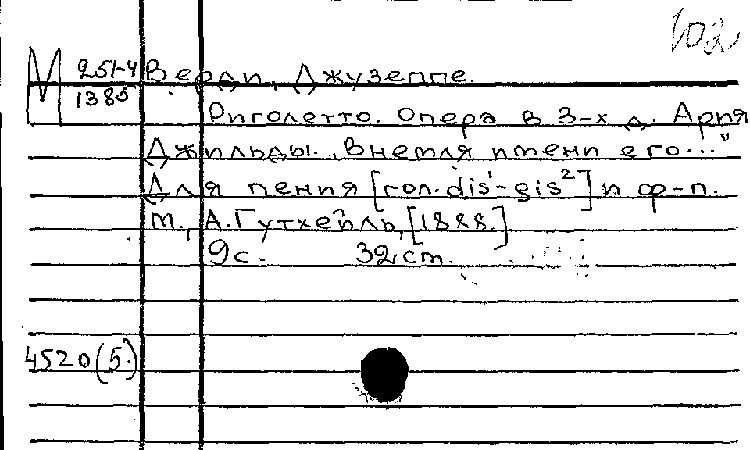 102
М 251-4 Верди, Джузеппе.
1385
Риголетто. Опера в 3-х д. Ария
Джильды. „Внемля имени его..."
Для пения [гол. dis¹-gis²] и ф-п.
М., А. Гутхейль, [1888.]
9с. 32 cm.
4520(5.)